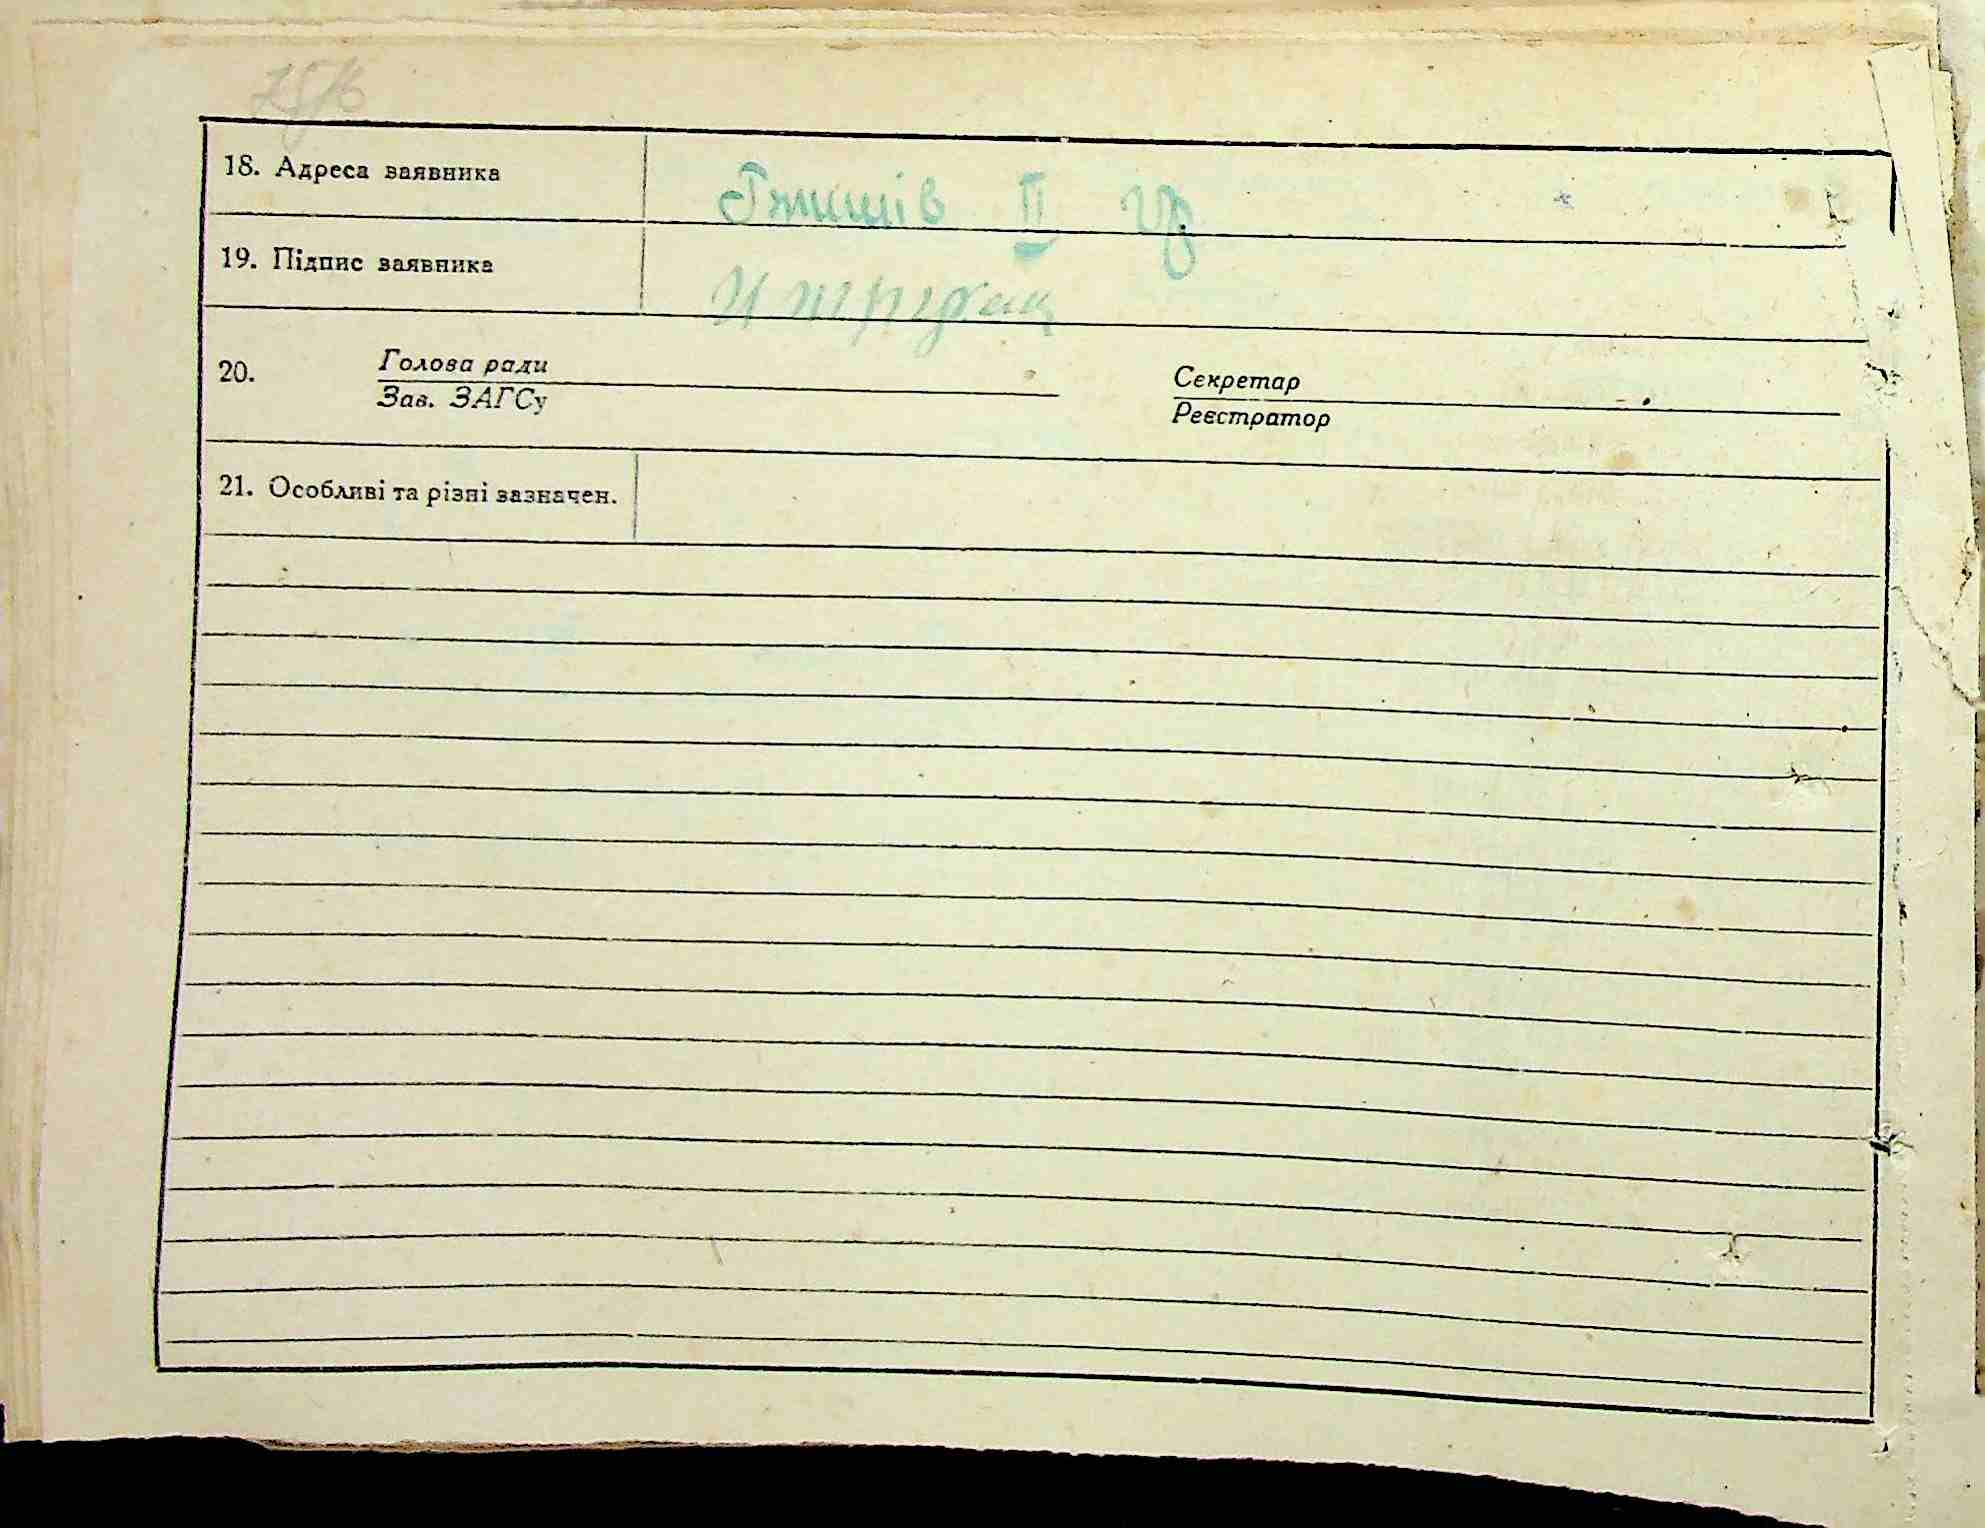 18. Адреса заявника
Гжищів II
19. Підпис заявника
20. Голова ради
Зав. ЗАГСу
Секретар
Реєстратор
21. Особливі та різні зазначен.